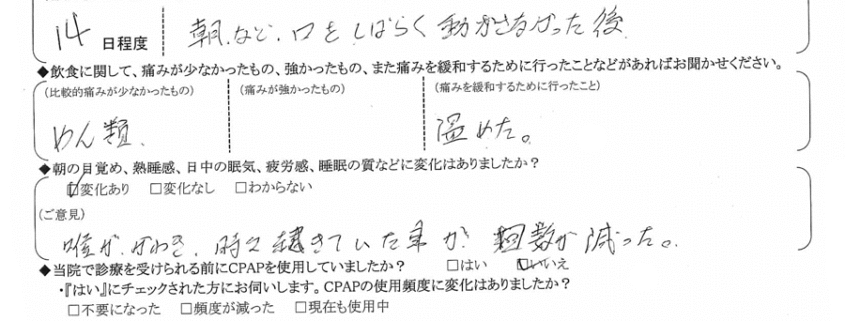 14 日程度 朝など、口をしばらく動かさなかった後
◆飲食に関して、痛みが少なかったもの、強かったもの、また痛みを緩和するために行ったことなどがあればお聞かせください。
(比較的痛みが少なかったもの) (痛みが強かったもの) (痛みを緩和するために行ったこと)
めん類. 温めた。
◆朝の目覚め、熟睡感、日中の眠気、疲労感、睡眠の質などに変化はありましたか?
☑変化あり □変化なし □わからない
(ご意見)
喉がかわき、時々起きていた事が回数が減った。
◆当院で診療を受けられる前にCPAPを使用していましたか? □はい ☑いいえ
・『はい』にチェックされた方にお伺いします。CPAPの使用頻度に変化はありましたか?
□不要になった □頻度が減った □現在も使用中